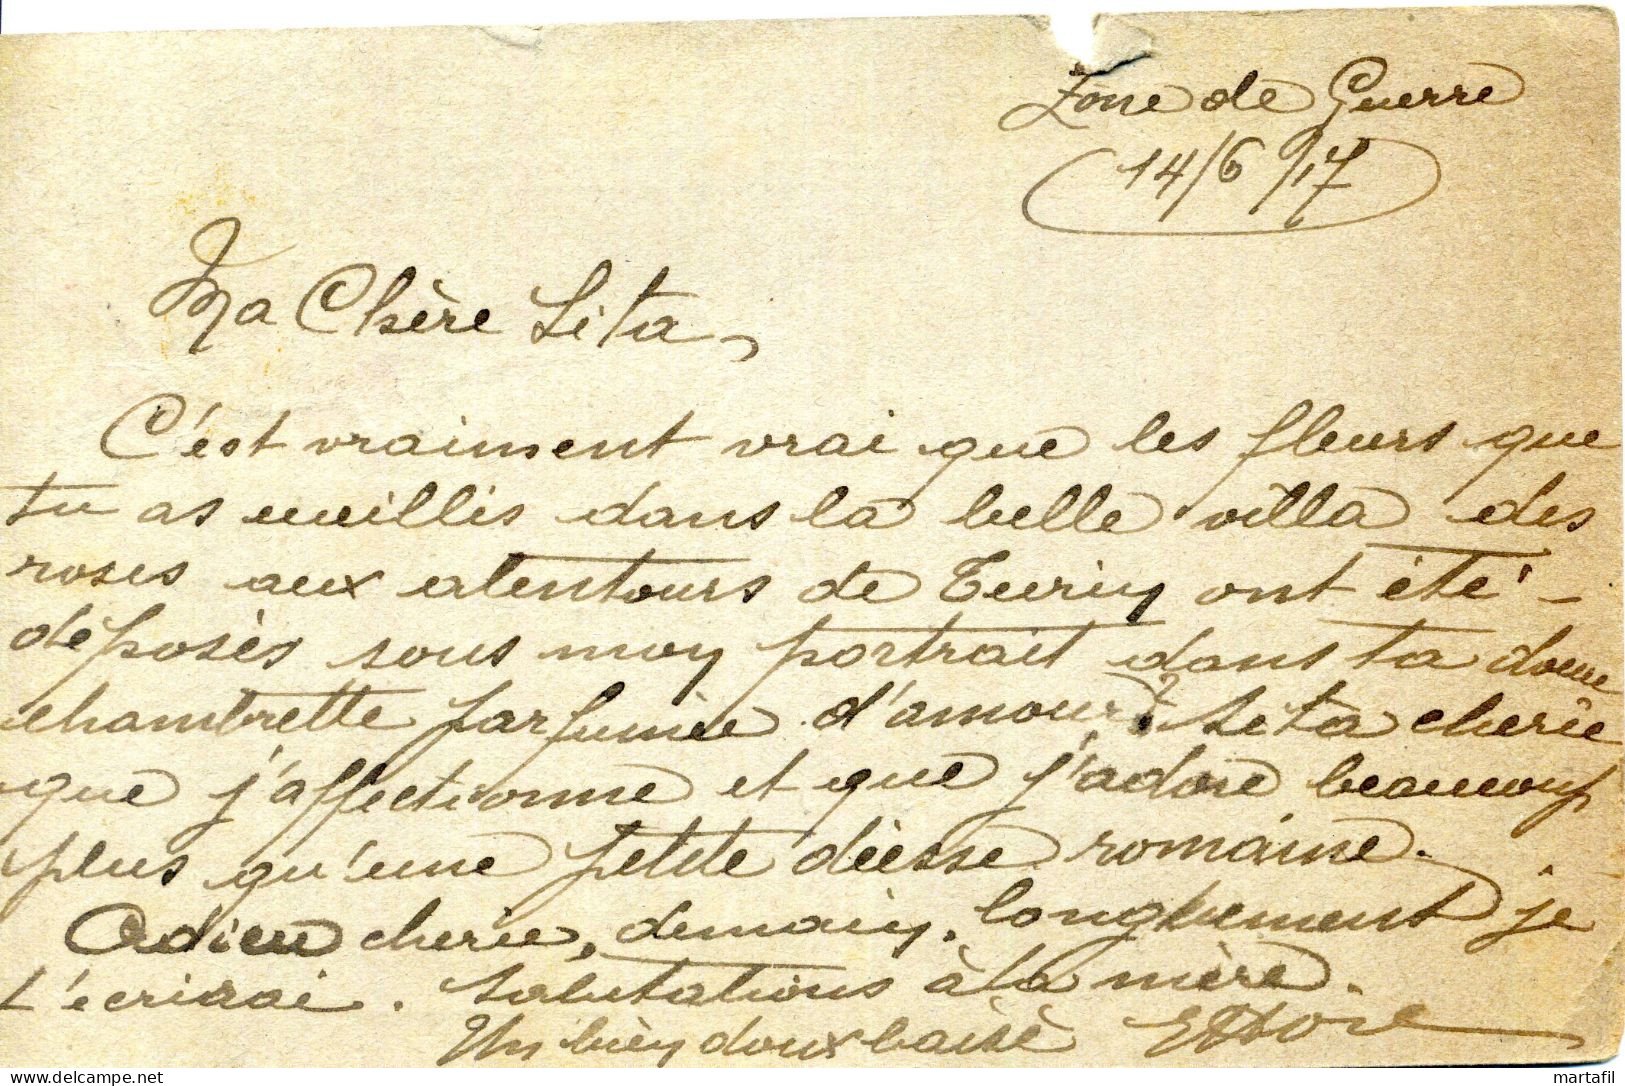 Zone de Guerre
14/6/17
Ma Chère Lita,
C'est vraiment vrai que les fleurs que
tu as cueillis dans la belle villa des
roses aux alentours de Turin ont été -
déposès sous mon portrait dans ta douce
chambrette parfumèe d'amour? Lita cherie
que j'affectionne et que j'adore beaucoup
plus qu'une petite dèesse romaine.
Adieu cherie, demain, longuement je
t'ecrirai. Salutations à ta mère.
Un bien doux baisè Ettore
martafil